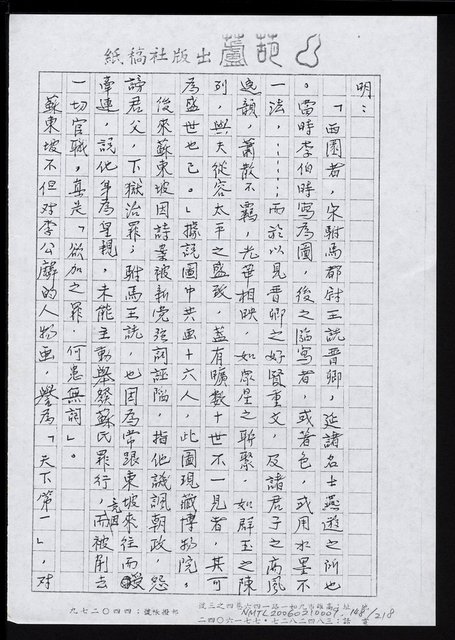 葫蘆出版社稿紙
明：
「西園者，宋駙馬都尉王詵晋卿，延諸名士燕遊之所也
。當時李伯時寫為圖，後之臨寫者，或著色，或用水墨不
一法，………而於以見晋卿之好賢重文，及諸君子之高風
逸韻，蕭散不羈，光華相映，如眾星之聯聚，如群玉之陳
列，與夫從容太平之盛致，蓋有曠數十世不一見者，其可
為盛世也已。」據説圖中共画十六人，此圖現藏博物院。
後來蘇東坡因詩案被新党強詞誣陷，指他譏諷朝政，怨
謗君父，下獄治罪；駙馬王詵，也因為常跟東坡來往而
牽連，説他身為皇親，未能主動舉發蘇氏罪行，竟因而被削去
一切官職。真是「欲加之罪，何患無詞」。
蘇東坡不但对李公麟的人物画，譽為「天下第一」，对
NMTL20060210007
108/218